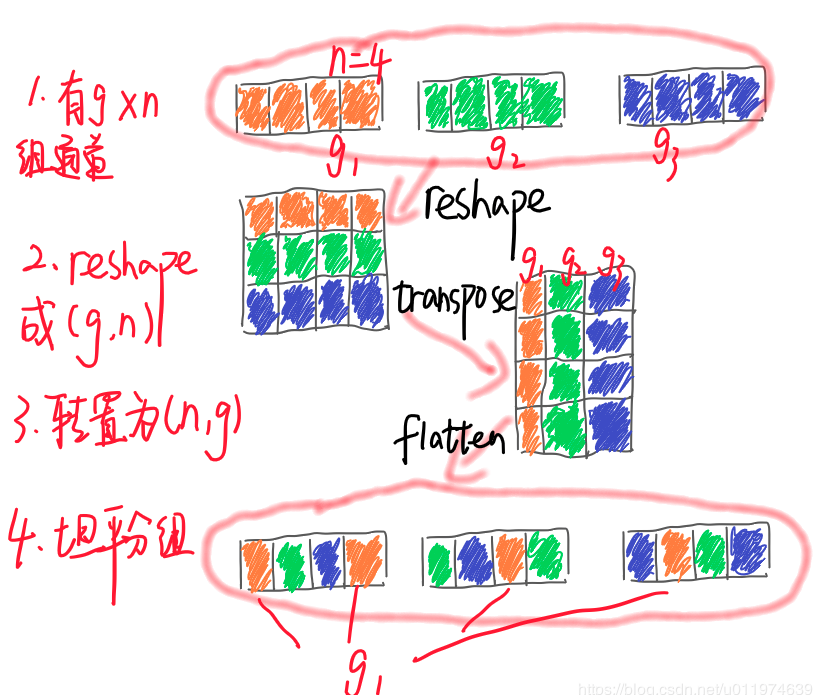 n=4
1.有g×n
组通道
g1
g2
g3
reshape
2.reshape
成(g,n)
g1 g2 g3
transpose
3.转置为(n,g)
flatten
4.坦平分组
g1
https://blog.csdn.net/u011974639